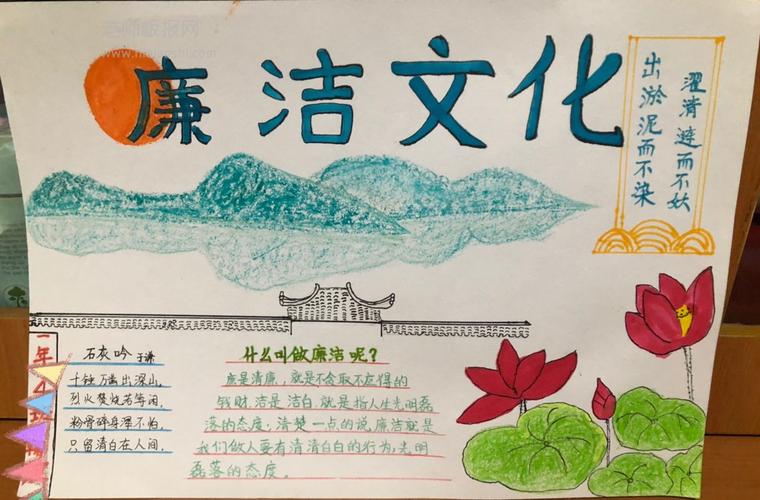 老师板报网
廉洁文化
出淤泥而不染
濯清涟而不妖
石灰吟 于谦
千锤万凿出深山,
烈火焚烧若等闲.
粉骨碎身浑不怕.
只留清白在人间.
什么叫做廉洁呢?
廉是清廉,就是不贪取不应得的
钱财.洁是洁白,就是指人生光明磊
落的态度,清楚一点的说,廉洁就是
我们做人要有清清白白的行为,光明
磊落的态度。